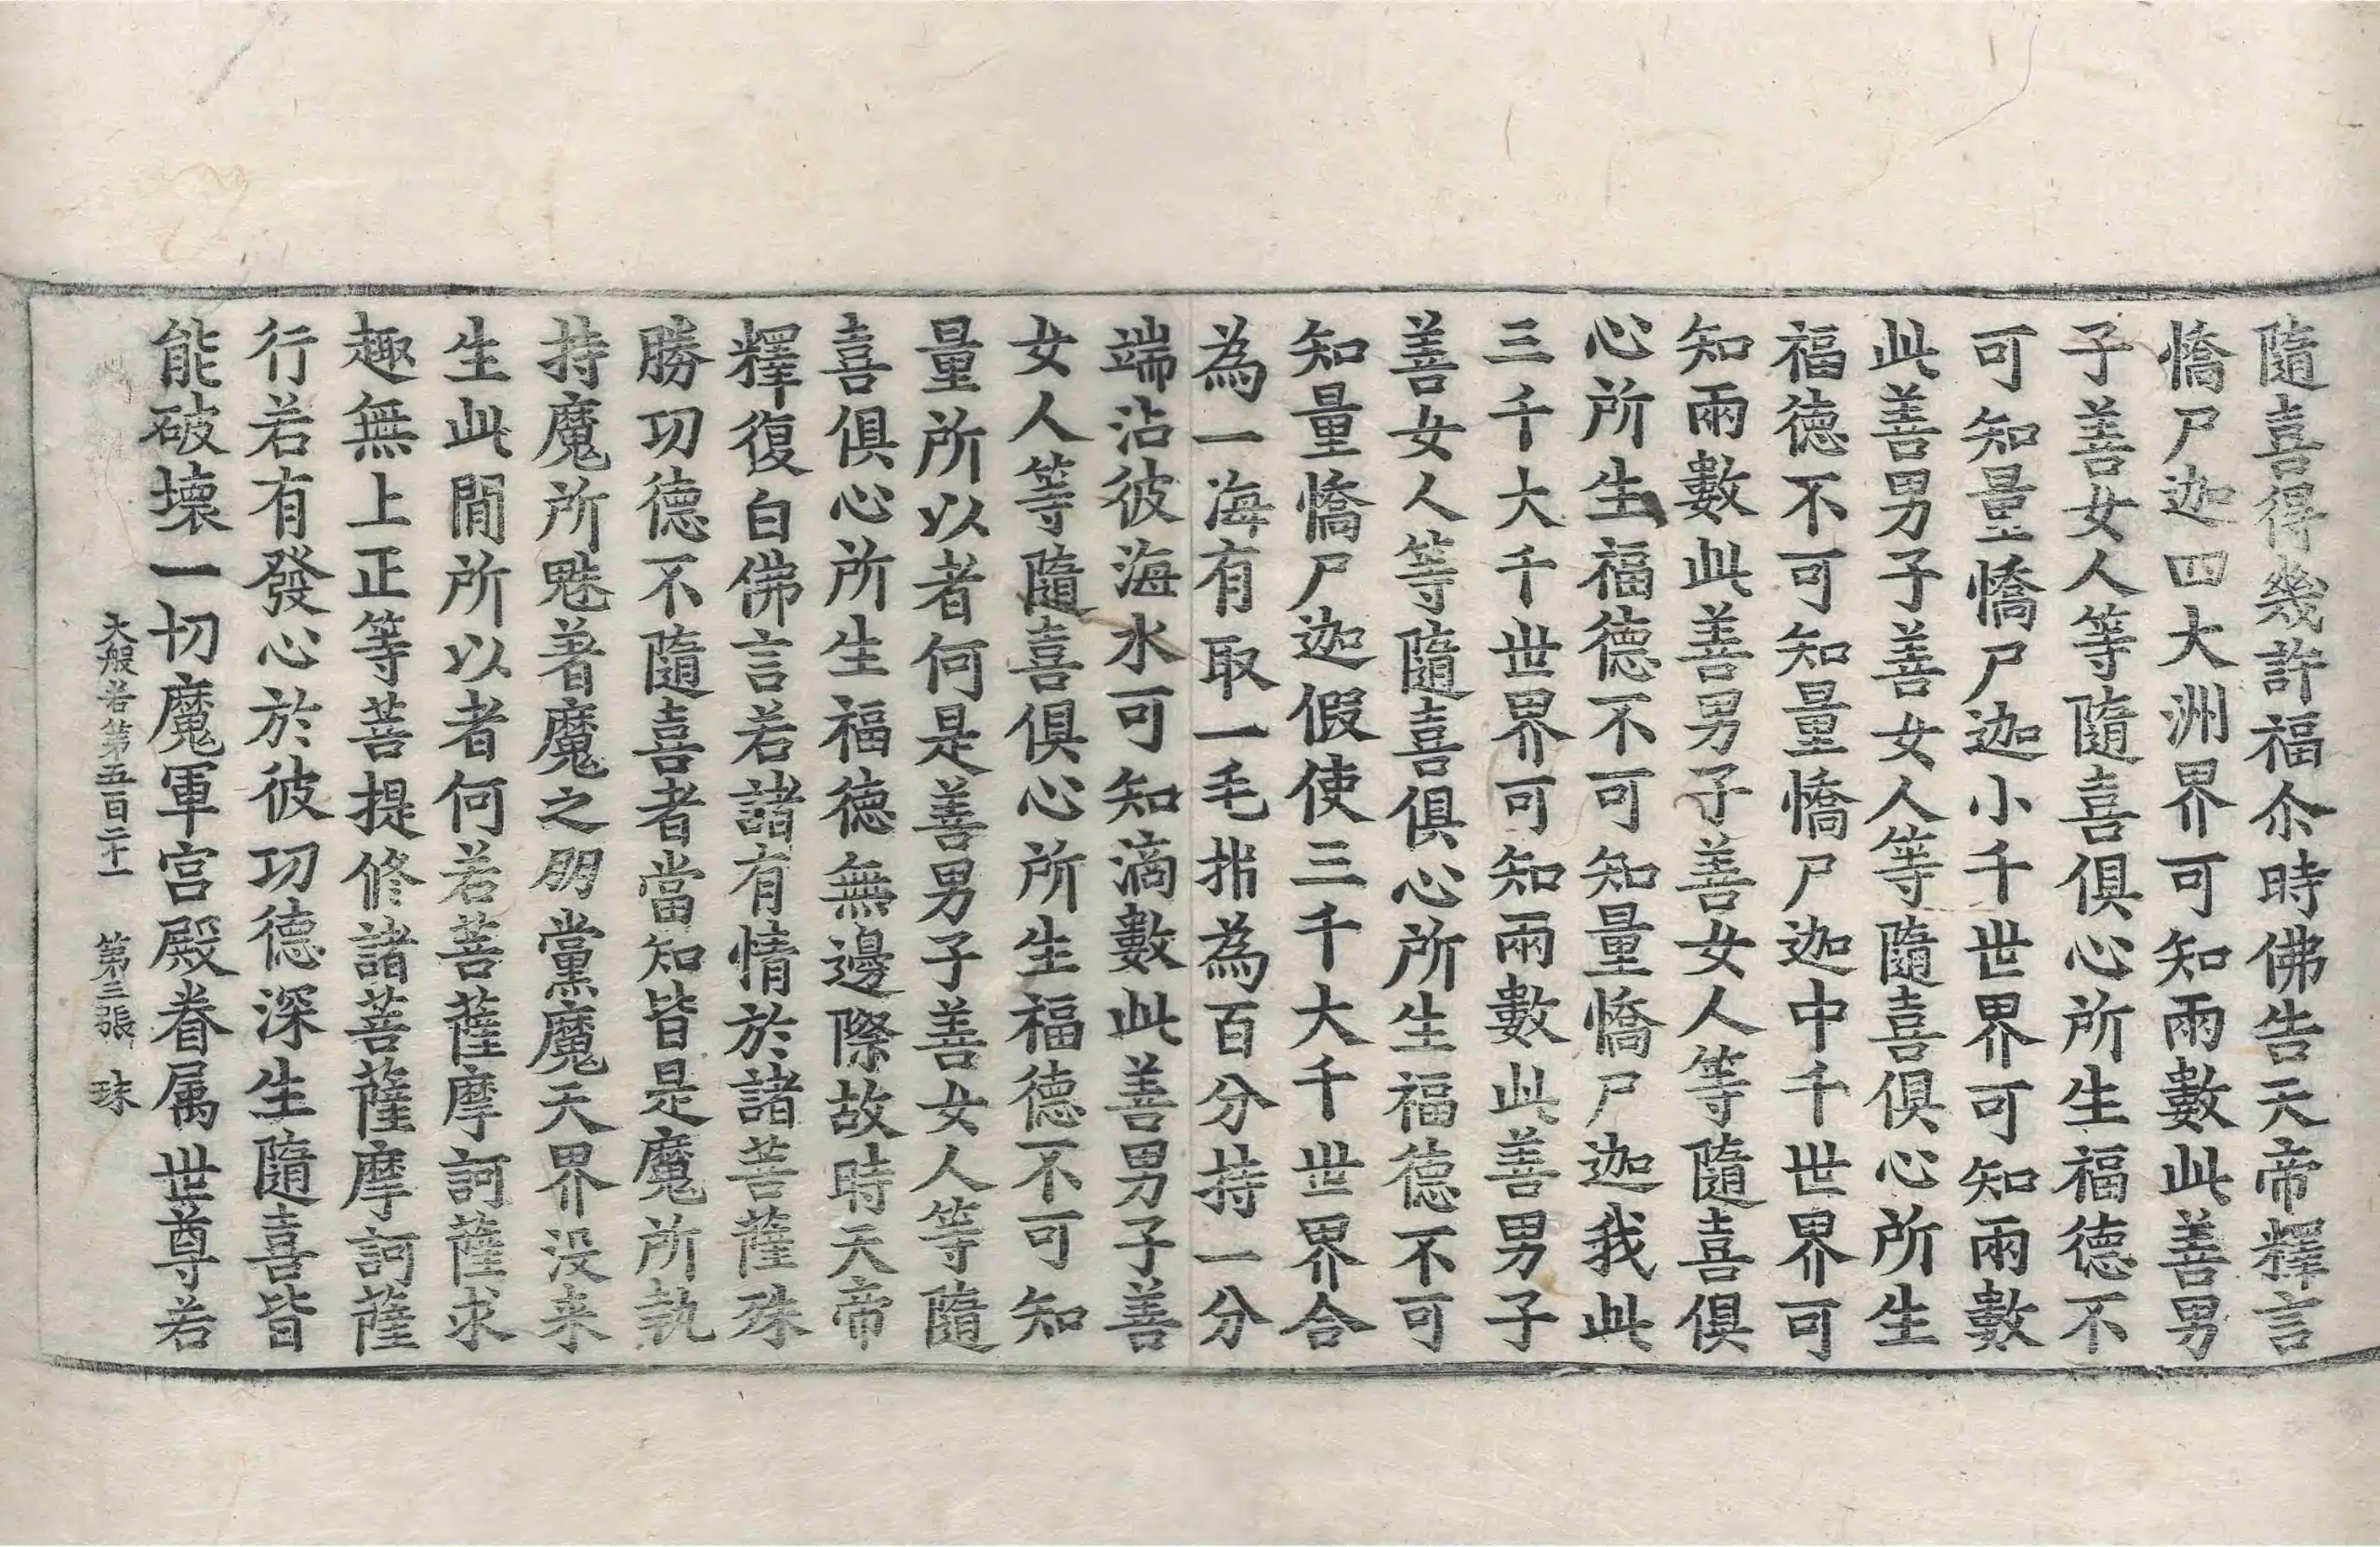 隨喜得幾許福尒時佛告天帝釋言
憍尸迦四大洲界可知兩數此善男
子善女人等隨喜俱心所生福德不
可知量憍尸迦小千世界可知兩數
此善男子善女人等隨喜俱心所生
福德不可知量憍尸迦中千世界可
知兩數此善男子善女人等隨喜俱
心所生福德不可知量憍尸迦我此
三千大千世界可知兩數此善男子
善女人等隨喜俱心所生福德不可
知量憍尸迦假使三千大千世界合
為一海有取一毛㭰為百分持一分
端沾彼海水可知滴數此善男子善
女人等隨喜俱心所生福德不可知
量所以者何是善男子善女人等隨
喜俱心所生福德無邊際故時天帝
釋復白佛言若諸有情於諸菩薩殊
勝功德不隨喜者當知皆是魔所執
持魔所魅著魔之朋黨魔天界没来
生此閒所以者何若菩薩摩訶薩求
趣無上正等菩提修諸菩薩摩訶薩
行若有發心於彼功德深生隨喜皆
能破壞一切魔軍宮殿眷属世尊若
大般若第五百二十一 第三張 珠